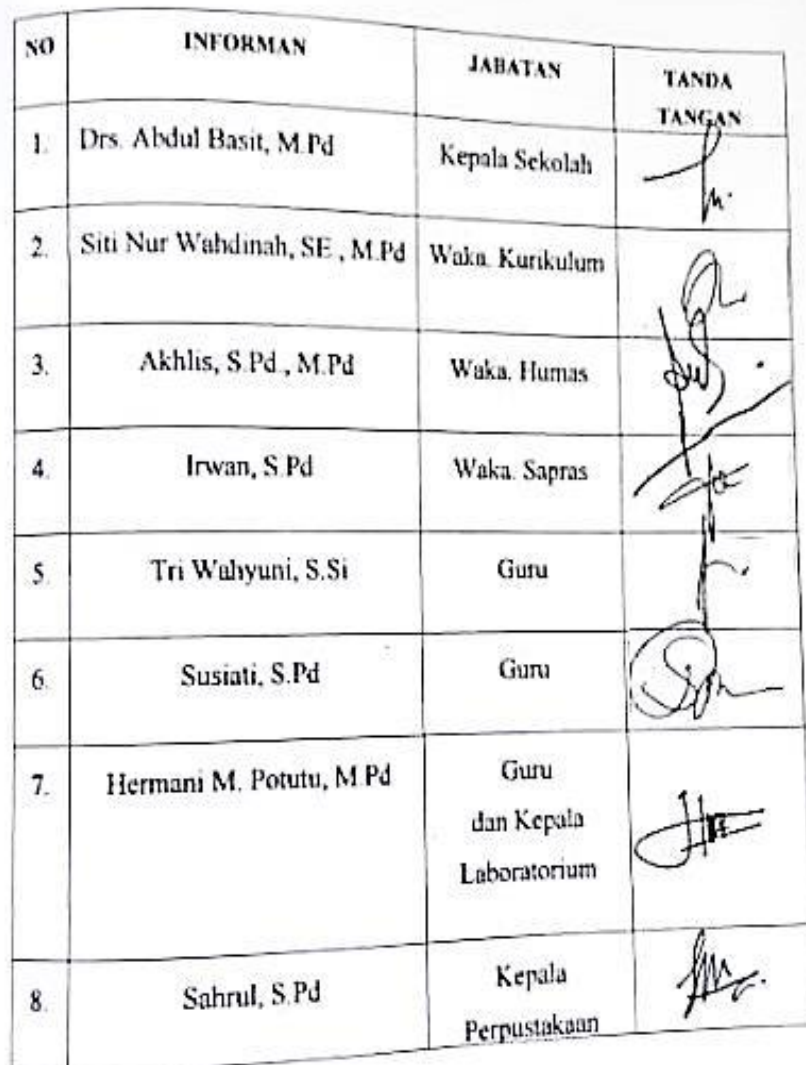 NO INFORMAN JABATAN TANDA
TANGAN
1. Drs. Abdul Basit, M.Pd Kepala Sekolah
2. Siti Nur Wahdinah, SE , M.Pd Waka. Kurikulum
3. Akhlis, S.Pd., M.Pd Waka. Humas
4. Irwan, S.Pd Waka. Sapras
5. Tri Wahyuni, S.Si Guru
6. Susiati, S.Pd Guru
7. Hermani M. Potutu, M.Pd Guru
dan Kepala
Laboratorium
8. Sahrul, S.Pd Kepala
Perpustakaan